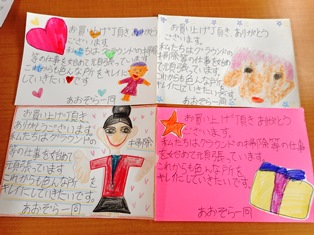 お買い上げ頂き、ありがとう
ございます。
私たちはグラウンドの掃除
等の仕事を始めて
元気に頑張っています。
これからも色んな所をキレイに
していきたいです。
あおぞら一同
お買い上げ頂き、ありがとう
ございます。
私たちはグラウンドの掃除
等の仕事を始めて
頑張っています。
これからも色んな所を
キレイにしていきたいです。
あおぞら一同
お買い上げ頂き、
ありがとうございます。
私たちはグラウンドの掃除
等の仕事を始めて
頑張っています。
これからも色んな所を
キレイにしていきたいです。
あおぞら一同
お買い上げ頂き ありがとう
ございます。
私たちはグラウンドの掃除等の仕事
を始めて
頑張っています。
これからも色んな所を
キレイにしていきたいです。
あおぞら一同